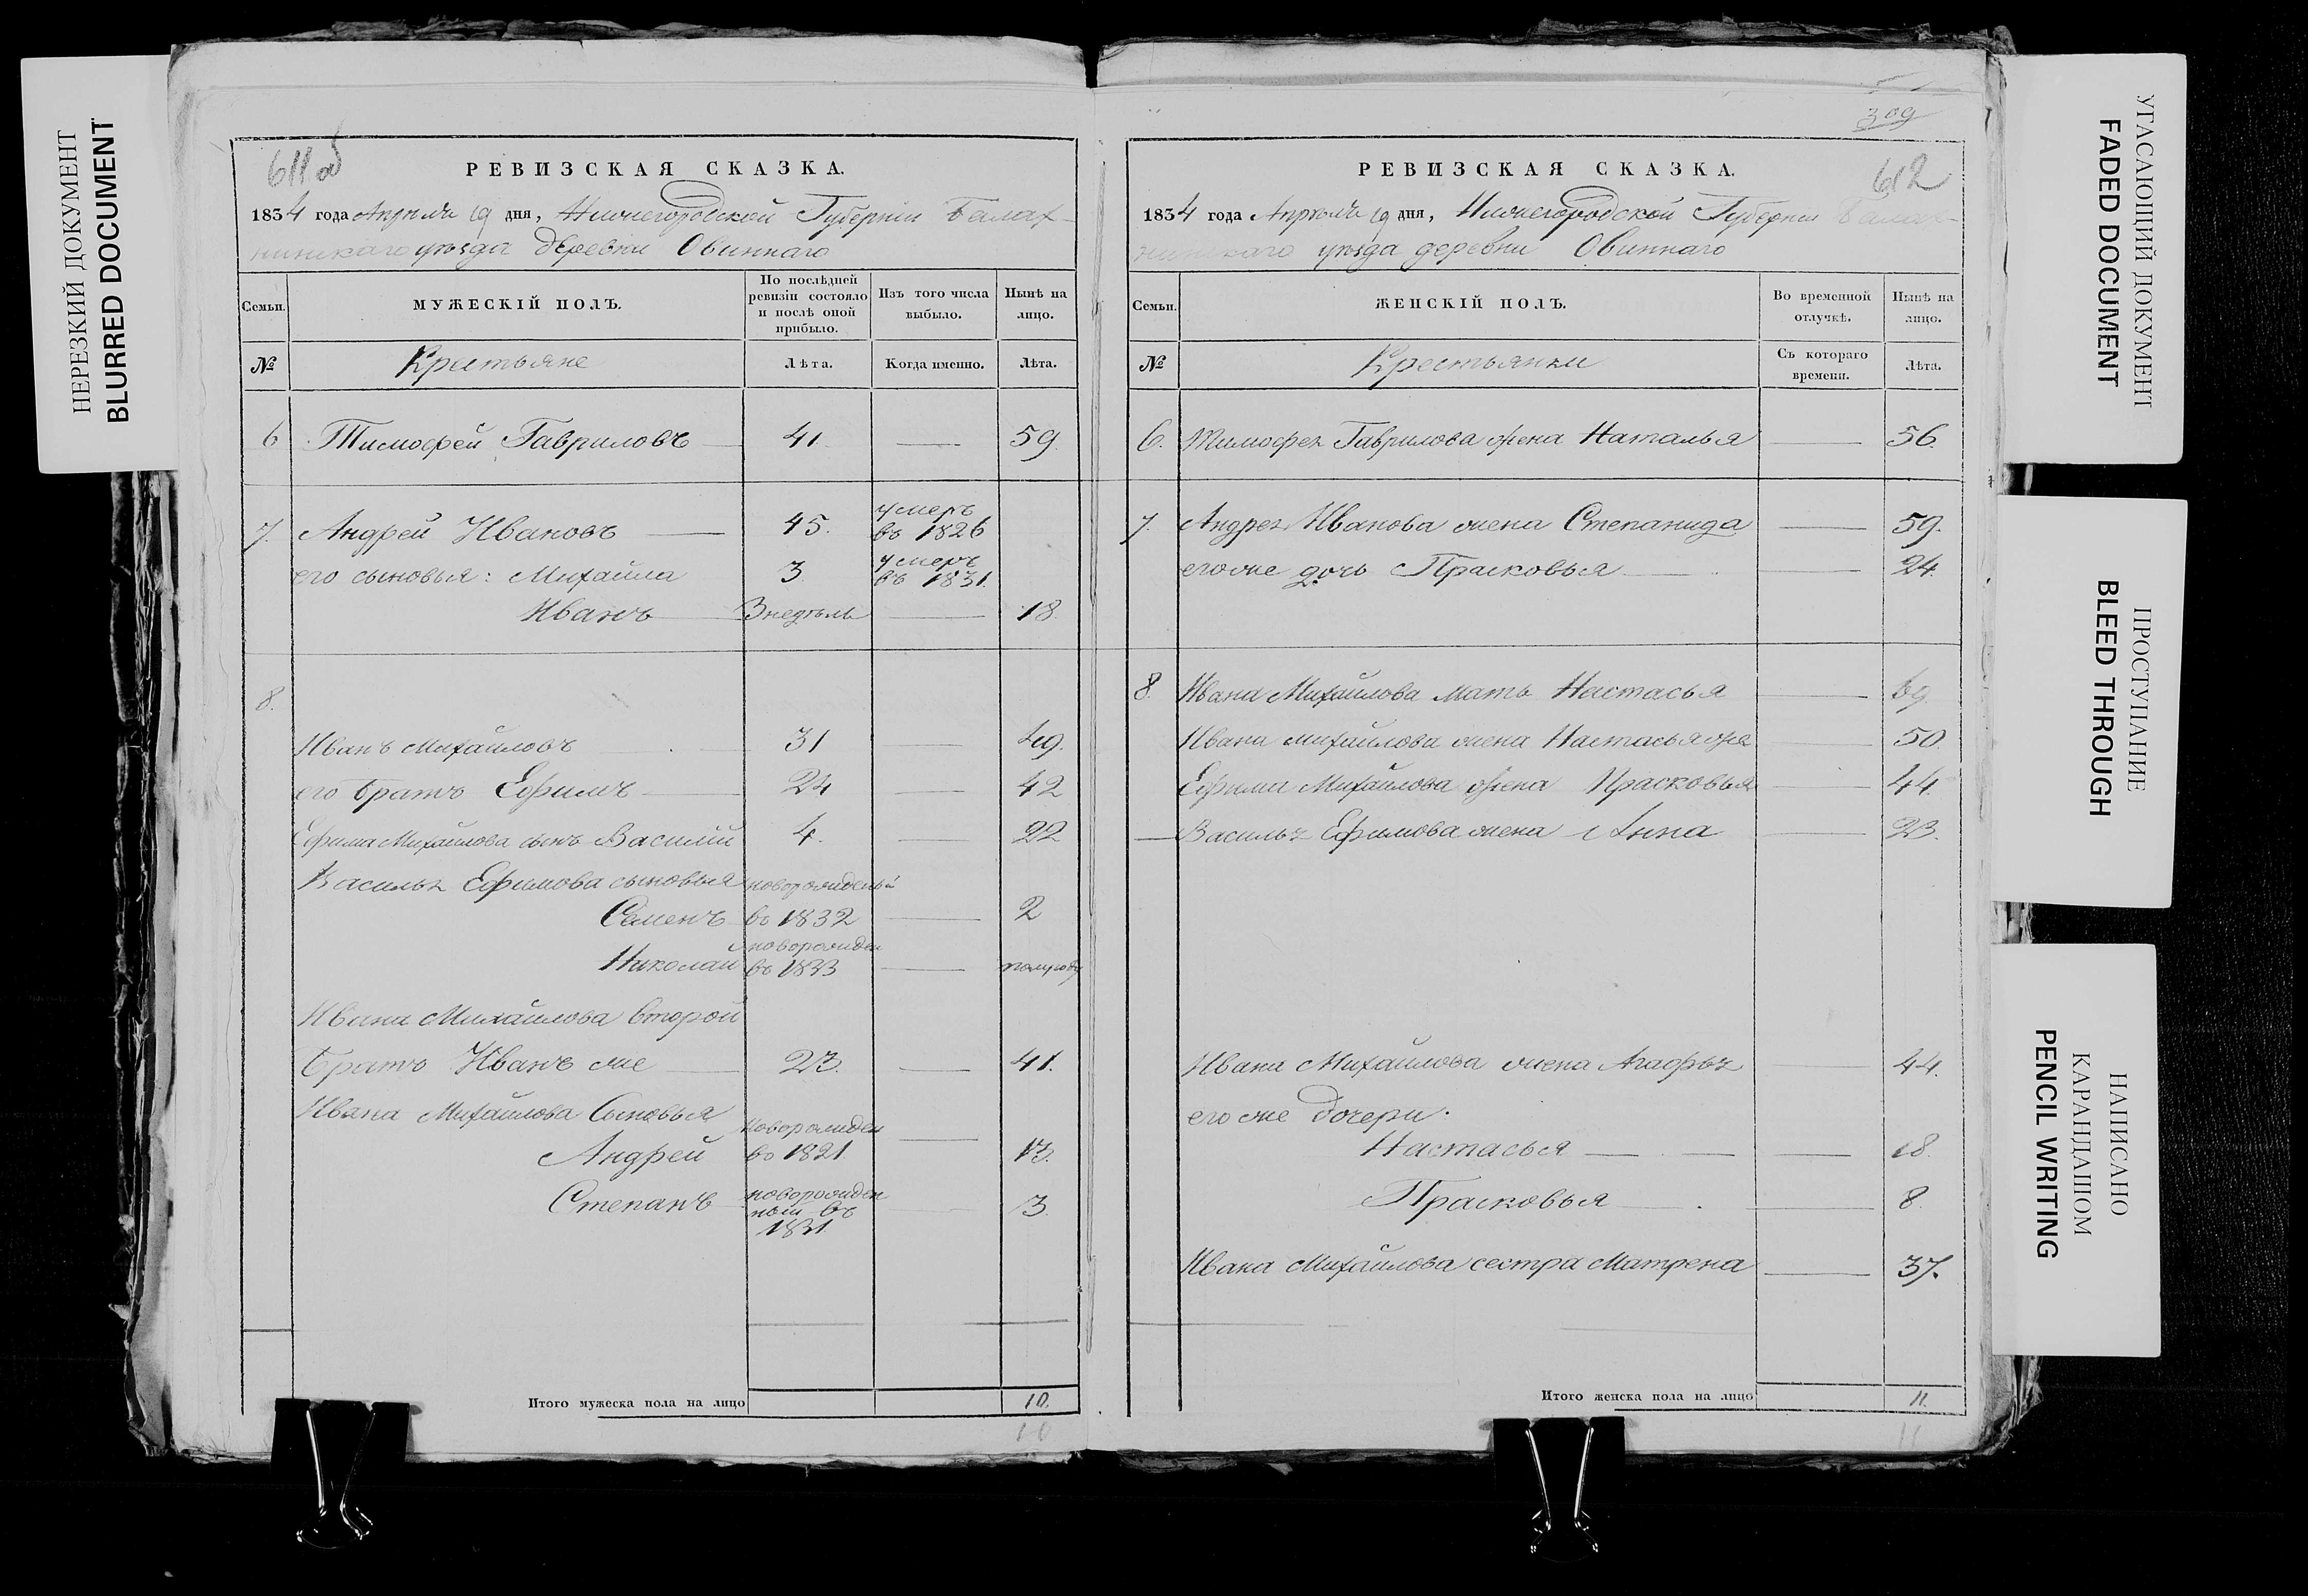 НЕРЕЗКИЙ ДОКУМЕНТ
BLURRED DOCUMENT
611 об
РЕВИЗСКАЯ СКАЗКА.
1834 года Апреля 19 дня, Нижегородской Губернии Балах-
нинскаго уѣзда деревни Овиннаго
Семьи.
МУЖЕСКІЙ ПОЛЪ.
По послѣдней ревизіи состояло и послѣ оной прибыло.
Изъ того числа выбыло.
Нынѣ на лицо.
№
Крестьяне
Лѣта.
Когда именно.
Лѣта.
6 Тимофей Гавриловъ 41 59.
7. Андрей Ивановъ 45. умеръ въ 1826
его сыновья: Михайла 3 умеръ въ 1831.
Иванъ 3 недѣль 18.
8.
Иванъ Михайловъ 31 49.
его братъ Ефимъ 24 42
Ефима Михайлова сынъ Василій 4. 22
Василья Ефимова сыновья новорожденый
Семенъ въ 1832 2
новорожден
Николай въ 1833 полугоду
Ивана Михайлова второй
братъ Иванъ же 23. 41.
Ивана Михайлова Сыновья
новорожден
Андрей во 1821 13.
Степанъ новорожден
ный въ 3.
1831
Итого мужеска пола на лицо 10.
10
309
612
РЕВИЗСКАЯ СКАЗКА.
1834 года Апреля 19 дня, Нижегородской Губернии Балах-
нинскаго уѣзда деревни Овиннаго
Семьи.
ЖЕНСКІЙ ПОЛЪ.
Во временной отлучкѣ.
Нынѣ на лицо.
№
Крестьянки
Съ котораго времени.
Лѣта.
6. Тимофея Гаврилова жена Наталья 56.
7. Андрея Иванова жена Степанида 59.
его же дочь Прасковья 24.
8. Ивана Михайлова мать Настасья 69
Ивана Михайлова жена Настасья же 50.
Ефима Михайлова жена Прасковья 44
Василья Ефимова жена Анна 23.
Ивана Михайлова жена Агафья 44.
его же дочери.
Настасья 18.
Прасковья 8.
Ивана Михайлова сестра Матрена 37.
Итого женска пола на лицо 11.
11
УГАСАЮЩИЙ ДОКУМЕНТ
FADED DOCUMENT
ПРОСТУПАНИЕ
BLEED THROUGH
НАПИСАНО
КАРАНДАШОМ
PENCIL WRITING